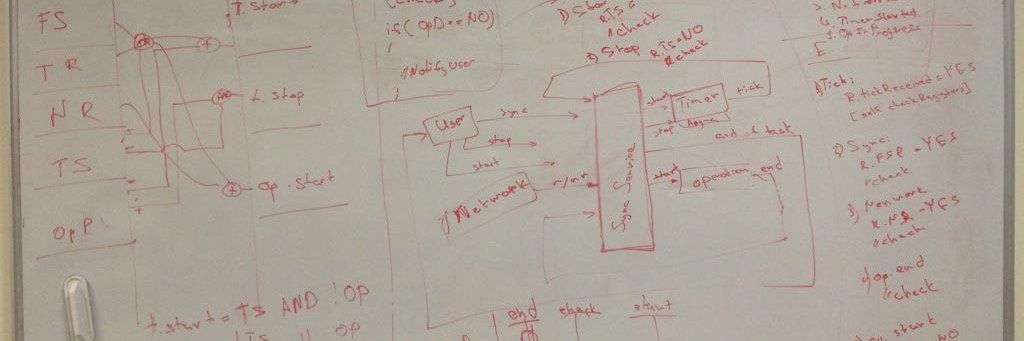 FS
TR
NR
TS
OpP
t. start
t. stop
op. start
t.start = TS AND !OP
if( OpD == NO)
//Notify User
1) Start
RTS =
//check
2) Stop
R.TS=NO
//check
User
sync
stop
start
Network
r/nr
Sync Service
start
Timer
tick
stop
Async
end of task
start
operation
end
end
check
start
4. Timer Started
5. Op InProgress
E
1) Tick:
R.tickReceived = YES
[self checkRegisters]
2) Sync:
R.FSR = YES
//check
3) Network
R.NR = YES
//check
4) op.end
//check
start
NO